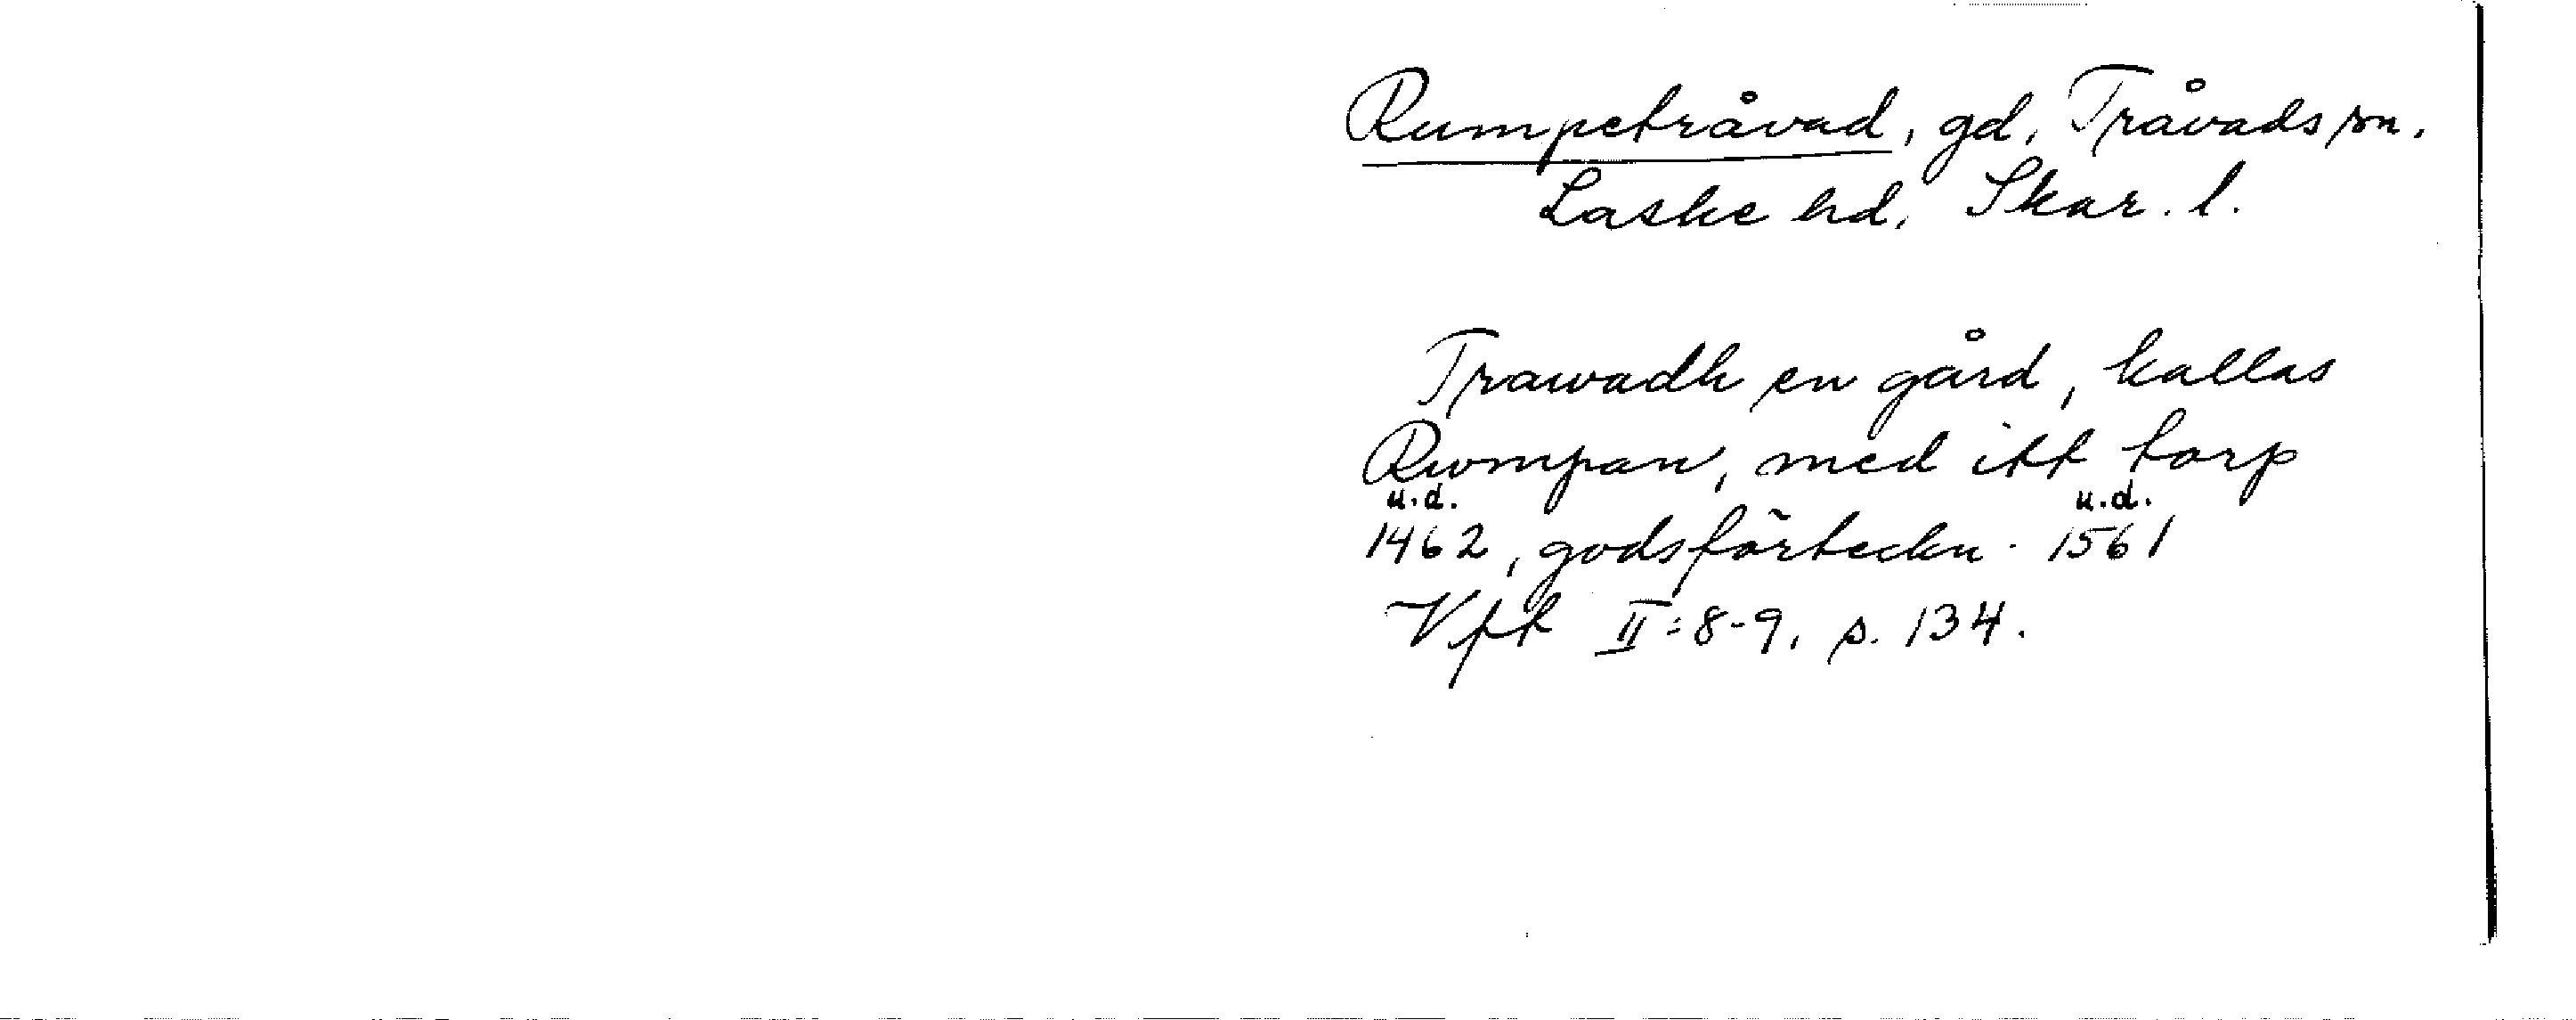 Rumpetråvad, gd, Tråvads sn.
Laske hd, Skar. l.
Trawadh en gård, kallas
Rumpan, med itt torp
u.d. u.d.
1462, godsförteckn. 1561
Vfft II:8-9, s. 134.